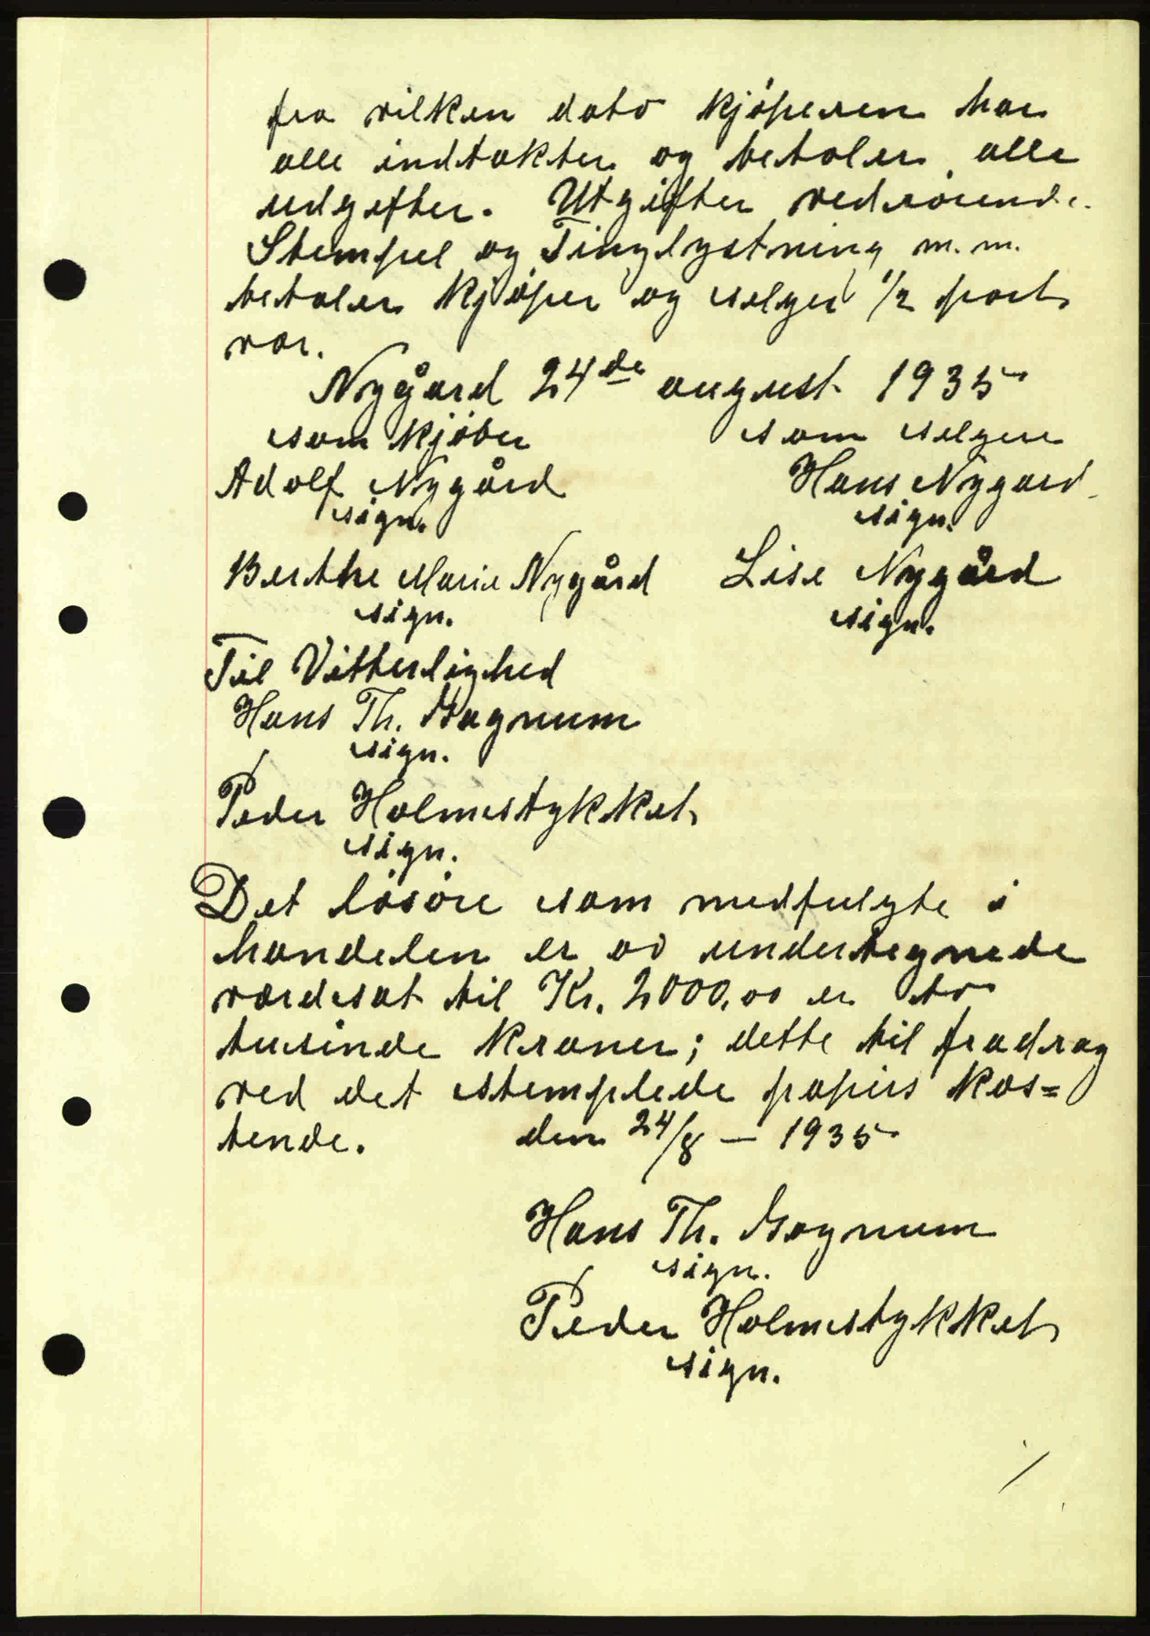 fra vilken dato kjøperen har
alle indtækter og betaler alle
udgifter. Utgifter vedrørende
Stempel og Tinglystning m.m.
betaler kjøper og selger 1/2 part
vær.
Nygård 24de august 1935
som kjøber som selgere
Adolf Nygård Hans Nygård
sign. sign.
Berthe Marie Nygård Lise Nygård
sign. sign.
Til Vitterlighed
Hans Th. Magnum
sign.
Peder Holmestykket
sign.
Det løsøre som medfulgte i
handelen er av undertegnede
værdisat til Kr. 2000,00 er to
tusinde kroner; dette til fradrag
ved det stemplede papirs kos=
tende. den 24/8 - 1935
Hans Th. Magnum
sign.
Peder Holmestykket
sign.